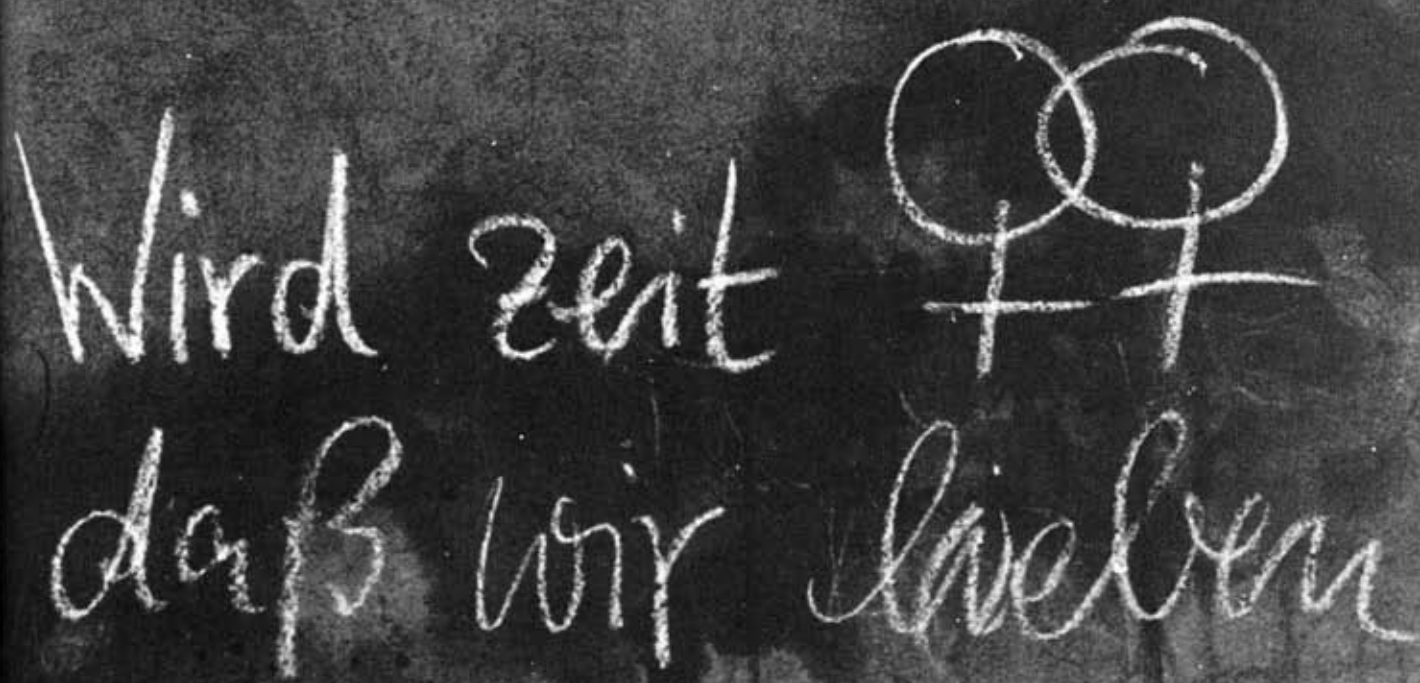 Wird zeit
daß wir lieben